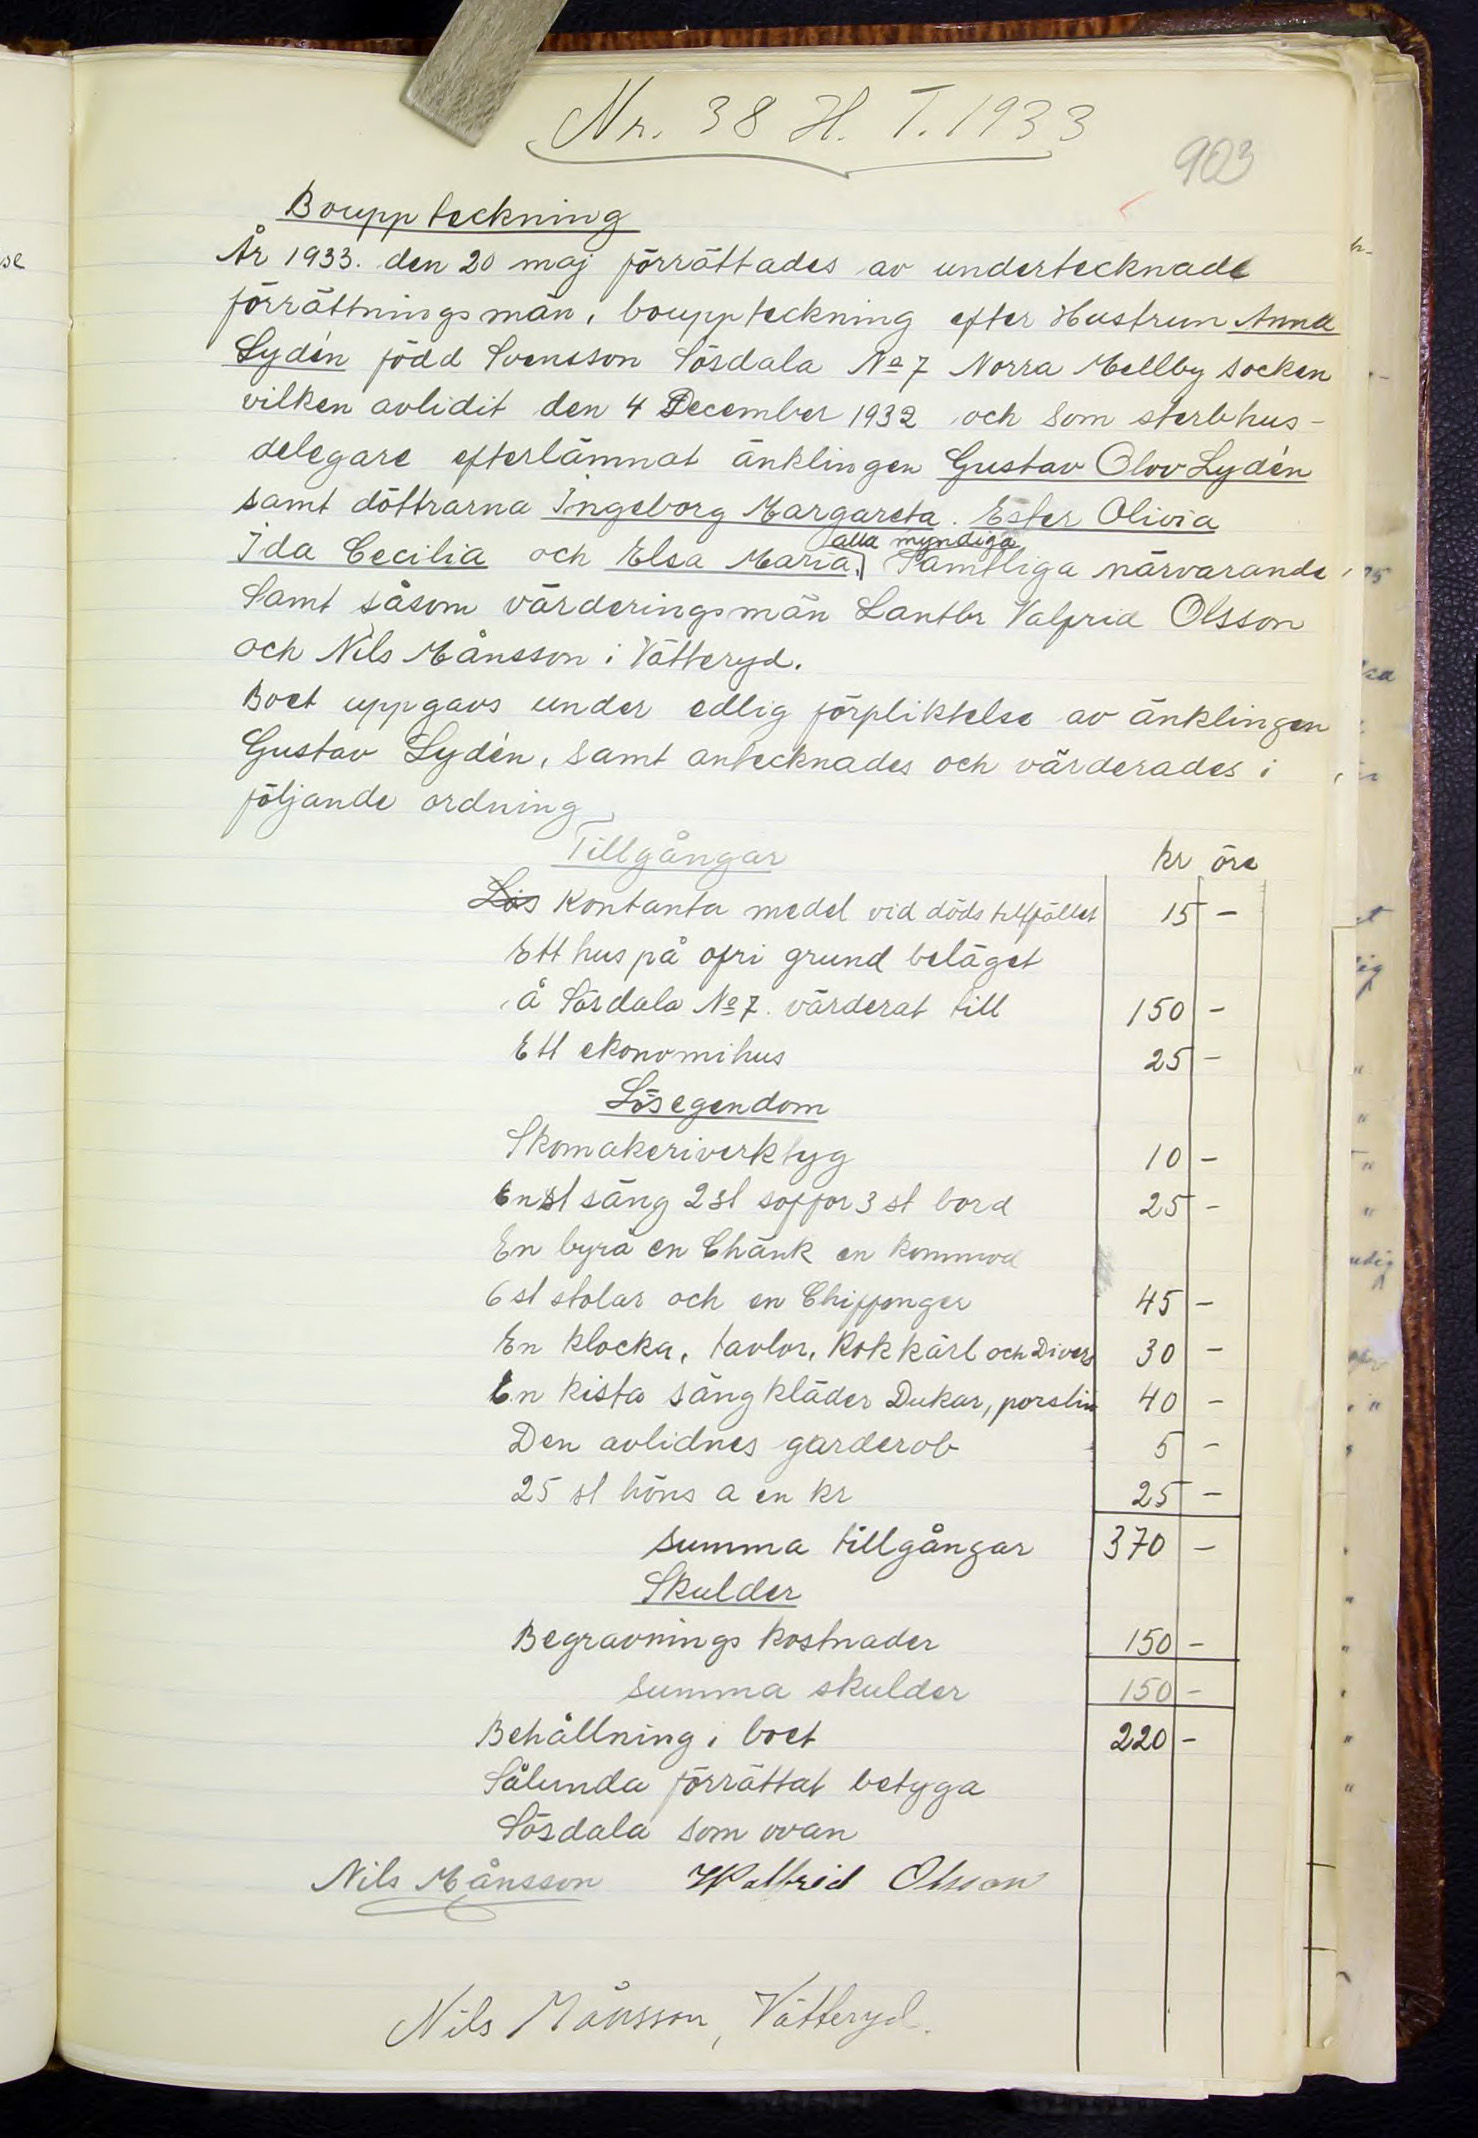 Nr. 38 H. T. 1933
903
Bouppteckning
År 1933. den 20 maj förrättades av undertecknade
förrättningsmän, bouppteckning efter Hustrun Anna
Lydén född Svensson Sösdala No 7 Norra Mellby socken
vilken avlidit den 4 December 1932 och som sterbhus-
delegare efterlämnat änklingen Gustav Olov Lydén
samt döttrarna Ingeborg Margareta. Ester Olivia
alla myndiga
Ida Cecilia och Elsa Maria. Samtliga närvarande
Samt såsom värderingsmän Lantbr Valfrid Olsson
och Nils Månsson i Vätteryd.
Boet uppgavs under edlig förpliktelse av änklingen
Gustav Lydén, samt antecknades och värderades i
följande ordning
Tillgångar kr öre
Lös Kontanta medel vid dödstillfället 15 -
Ett hus på ofri grund beläget
å Sösdala No 7. värderat till 150 -
Ett ekonomihus 25 -
Lösegendom
Skomakeriverktyg 10 -
En st säng 2 st soffor 3 st bord 25 -
En byrå en Chänk en kommod
6 st stolar och en Chiffonger 45 -
En klocka, tavlor, Kokkärl och Divers 30 -
En kista sängkläder Dukar, porslin 40 -
Den avlidnes garderob 5 -
25 st höns a en kr 25 -
summa tillgångar 370 -
Skulder
Begravnings kostnader 150 -
summa skulder 150 -
Behållning i boet 220 -
Sålunda förrättat betyga
Sösdala som ovan
Nils Månsson Walfrid Olsson
Nils Månsson, Vätteryd.